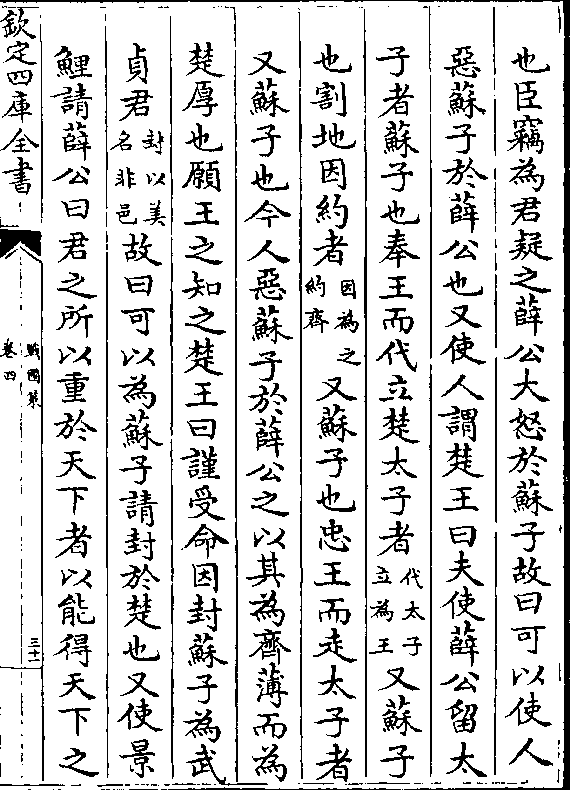 也臣竊為君疑之薛公大怒於蘇子故曰可以使人
惡蘇子於薛公也又使人謂楚王曰夫使薛公留太
子者蘇子也奉王而代立楚太子者代太子立為王又蘇子
也割地因約者因為之約齊又蘇子也忠王而走太子者
又蘇子也今人惡蘇子於薛公之以其為齊薄而為
楚厚也願王之知之楚王曰謹受命因封蘇子為武
貞君封以美名非邑故曰可以為蘇子請封於楚也又使景
鯉請薛公曰君之所以重於天下者以能得天下之
欽定四庫全書
戰國策
卷四
三十一